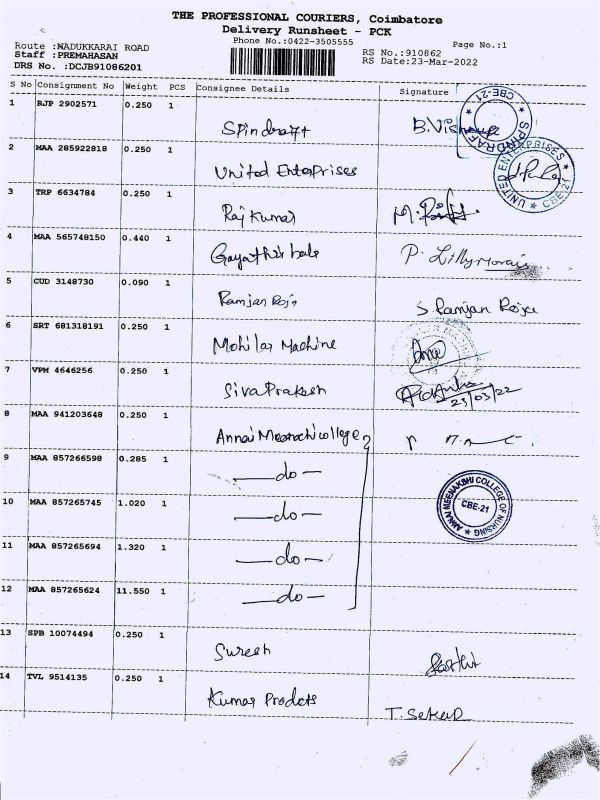 THE PROFESSIONAL COURIERS, Coimbatore
Delivery Runsheet - PCK
Phone No.:0422-3505555
Page No.:1
Route :NADUKKARAI ROAD
Staff :PREMAHASAN
DRS No. :DCJB91086201
RS No.:910862
RS Date:23-Mar-2022
S No Consignment No Weight PCS Consignee Details Signature
1 RJP 2902571 0.250 1 Spindraft
CBE-21 SPINDRAFT
2 MAA 285922818 0.250 1 United Enterprises
UNITED ENTERPRISES CBE-21
3 TRP 6634784 0.250 1 Raj Kumar
4 MAA 565748150 0.440 1 P. Lilly Morais
5 CUD 3148730 0.090 1 Ramjan Roja S. Ramjan Roja
6 SRT 681318191 0.250 1 Mohilar Machine
7 VPM 4646256 0.250 1 Siva Prakash
23/03/22
8 MAA 941203648 0.250 1 Annai Meenachi college
9 MAA 857266598 0.285 1 —do—
ANNAI MEENAKSHI COLLEGE OF NURSING CBE-21
10 MAA 857265745 1.020 1 —do—
11 MAA 857265694 1.320 1 —do—
12 MAA 857265624 11.550 1 —do—
13 SPB 10074494 0.250 1 Suresh
14 TVL 9514135 0.250 1 Kumar Prodcts T. Sekar